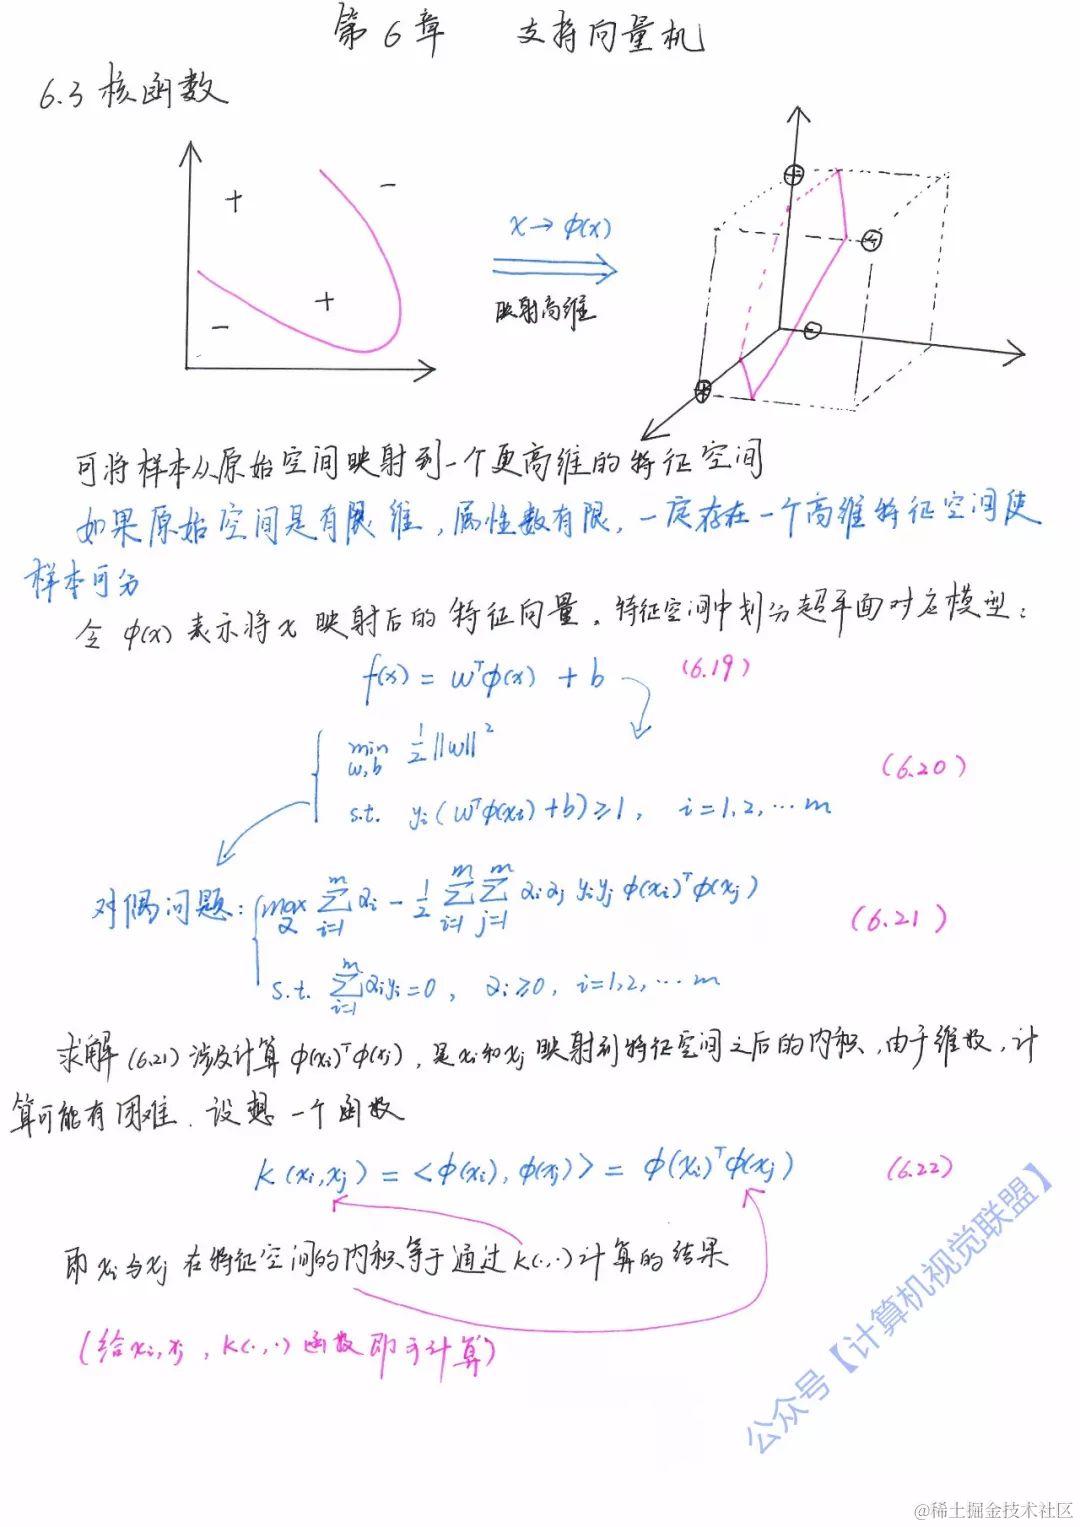 第6章 支持向量机
6.3 核函数
x→φ(x)
映射高维
可将样本从原始空间映射到一个更高维的特征空间
如果原始空间是有限维,属性数有限,一定存在一个高维特征空间使
样本可分
令 φ(x) 表示将 x 映射后的特征向量。特征空间中划分超平面对应模型:
f(x) = wᵀφ(x) + b (6.19)
min w,b ½||w||² (6.20)
s.t. yᵢ(wᵀφ(xᵢ)+b)≥1, i=1,2,…m
对偶问题: max α ∑ᵢ₌₁ᵐ αᵢ - ½ ∑ᵢ₌₁ᵐ ∑ⱼ₌₁ᵐ αᵢαⱼ yᵢyⱼ φ(xᵢ)ᵀφ(xⱼ) (6.21)
s.t. ∑ᵢ₌₁ᵐ αᵢyᵢ=0, αᵢ≥0, i=1,2,…m
求解(6.21)涉及计算 φ(xᵢ)ᵀφ(xⱼ), 是xᵢ和xⱼ映射到特征空间之后的内积,由于维数,计
算可能有困难.设想一个函数
k(xᵢ,xⱼ) = <φ(xᵢ), φ(xⱼ)> = φ(xᵢ)ᵀφ(xⱼ) (6.22)
即 xᵢ与xⱼ 在特征空间的内积等于通过k(·,·)计算的结果
(给xᵢ,xⱼ, k(·,·)函数即可计算)
公众号【计算机视觉联盟】
@稀土掘金技术社区